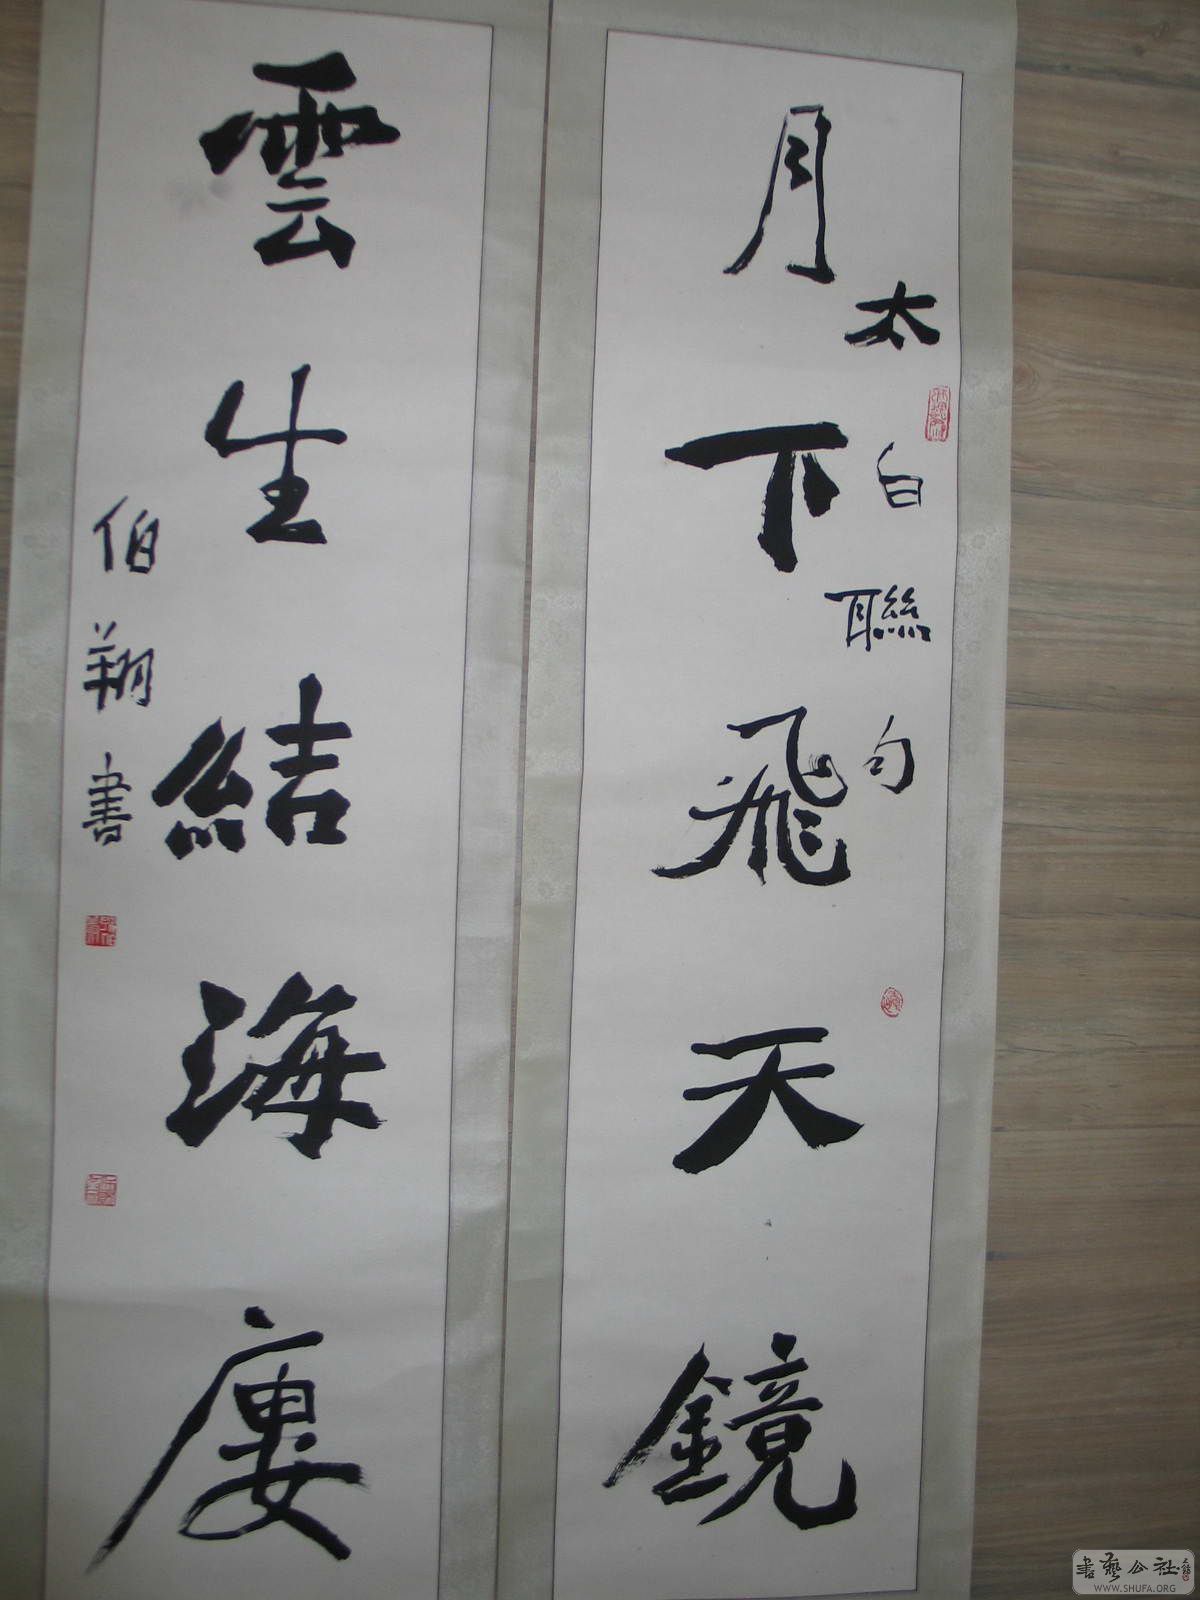 月下飛天鏡
太白聯句
雲生結海廔
伯翔書
書藝公社
WWW.SHUFA.ORG